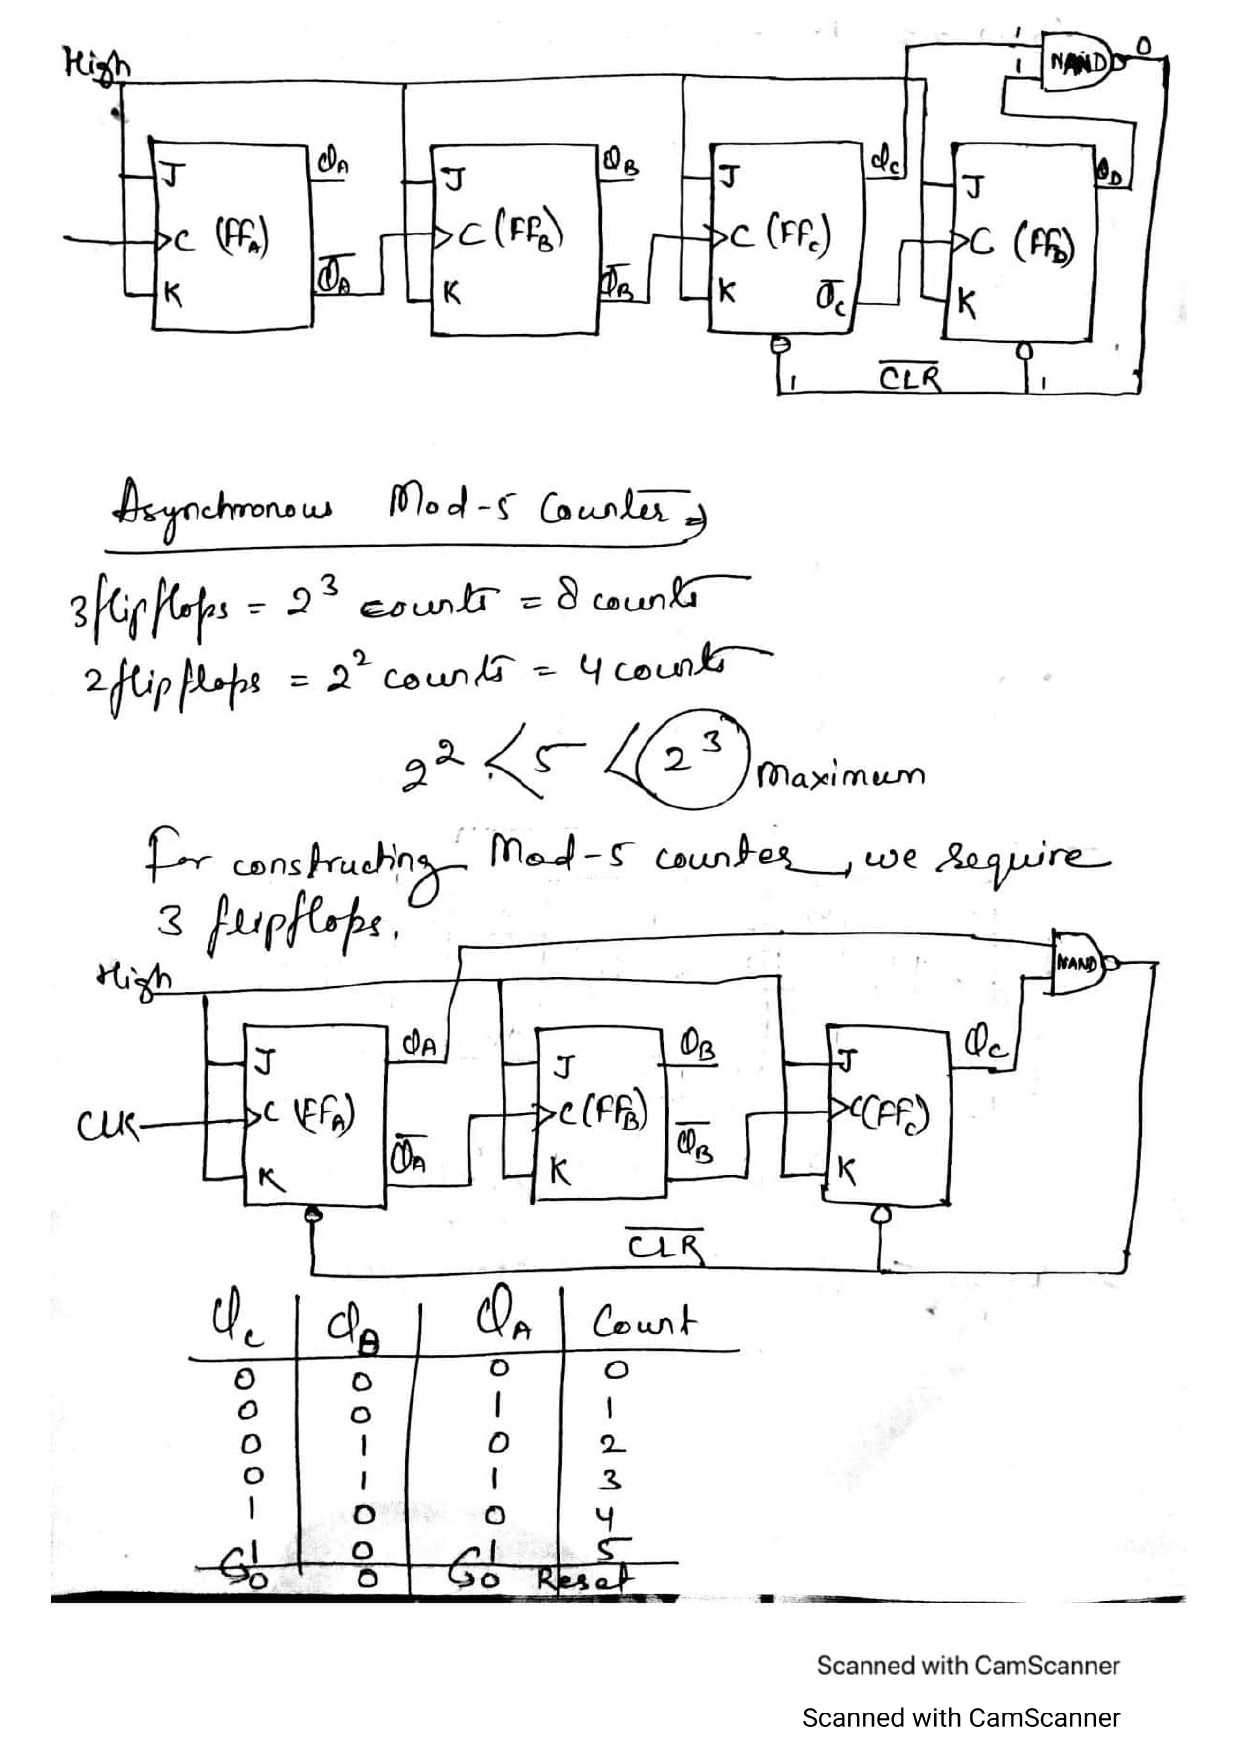 High
NAND
0
1
1
J
C (FFA)
K
QA
Q̅A
J
C (FFB)
K
QB
Q̅B
J
C (FFC)
K
QC
Q̅C
J
C (FFD)
K
QD
1
C̅L̅R̅
1
Asynchronous Mod-5 Counter ⇒
3 flipflops = 2³ counts = 8 counts
2 flipflops = 2² counts = 4 counts
2² < 5 < 2³ maximum
For constructing Mod-5 counter, we require
3 flipflops.
High
NAND
CLK
J
C (FFA)
K
QA
Q̅A
J
C (FFB)
K
QB
Q̅B
J
C (FFC)
K
QC
C̅L̅R̅
QC QB QA Count
0 0 0 0
0 0 1 1
0 1 0 2
0 1 1 3
1 0 0 4
1 0 1 5
0 0 0 Reset
Scanned with CamScanner
Scanned with CamScanner